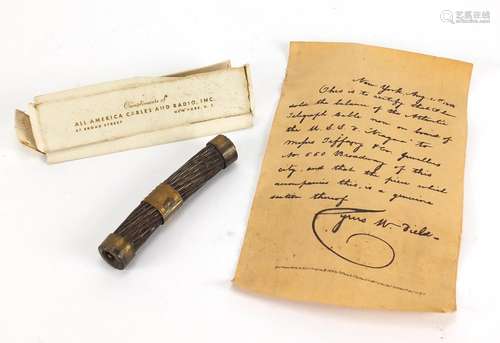 艺典中国
YIDIANCHINA.COM
Compliments of
ALL AMERICA CABLES AND RADIO, INC.
67 BROAD STREET NEW YORK, N. Y.
New York Aug
This is to certify that I have
sold the balance of the Atlantic
Telegraph Cable now on board of
the U.S.S.F. Niagara to
Messrs Tiffany & Co. Jewellers
No. 550 Broadway of this
city, and that the piece which
accompanies this, is a genuine
section thereof
Cyrus W. Field.